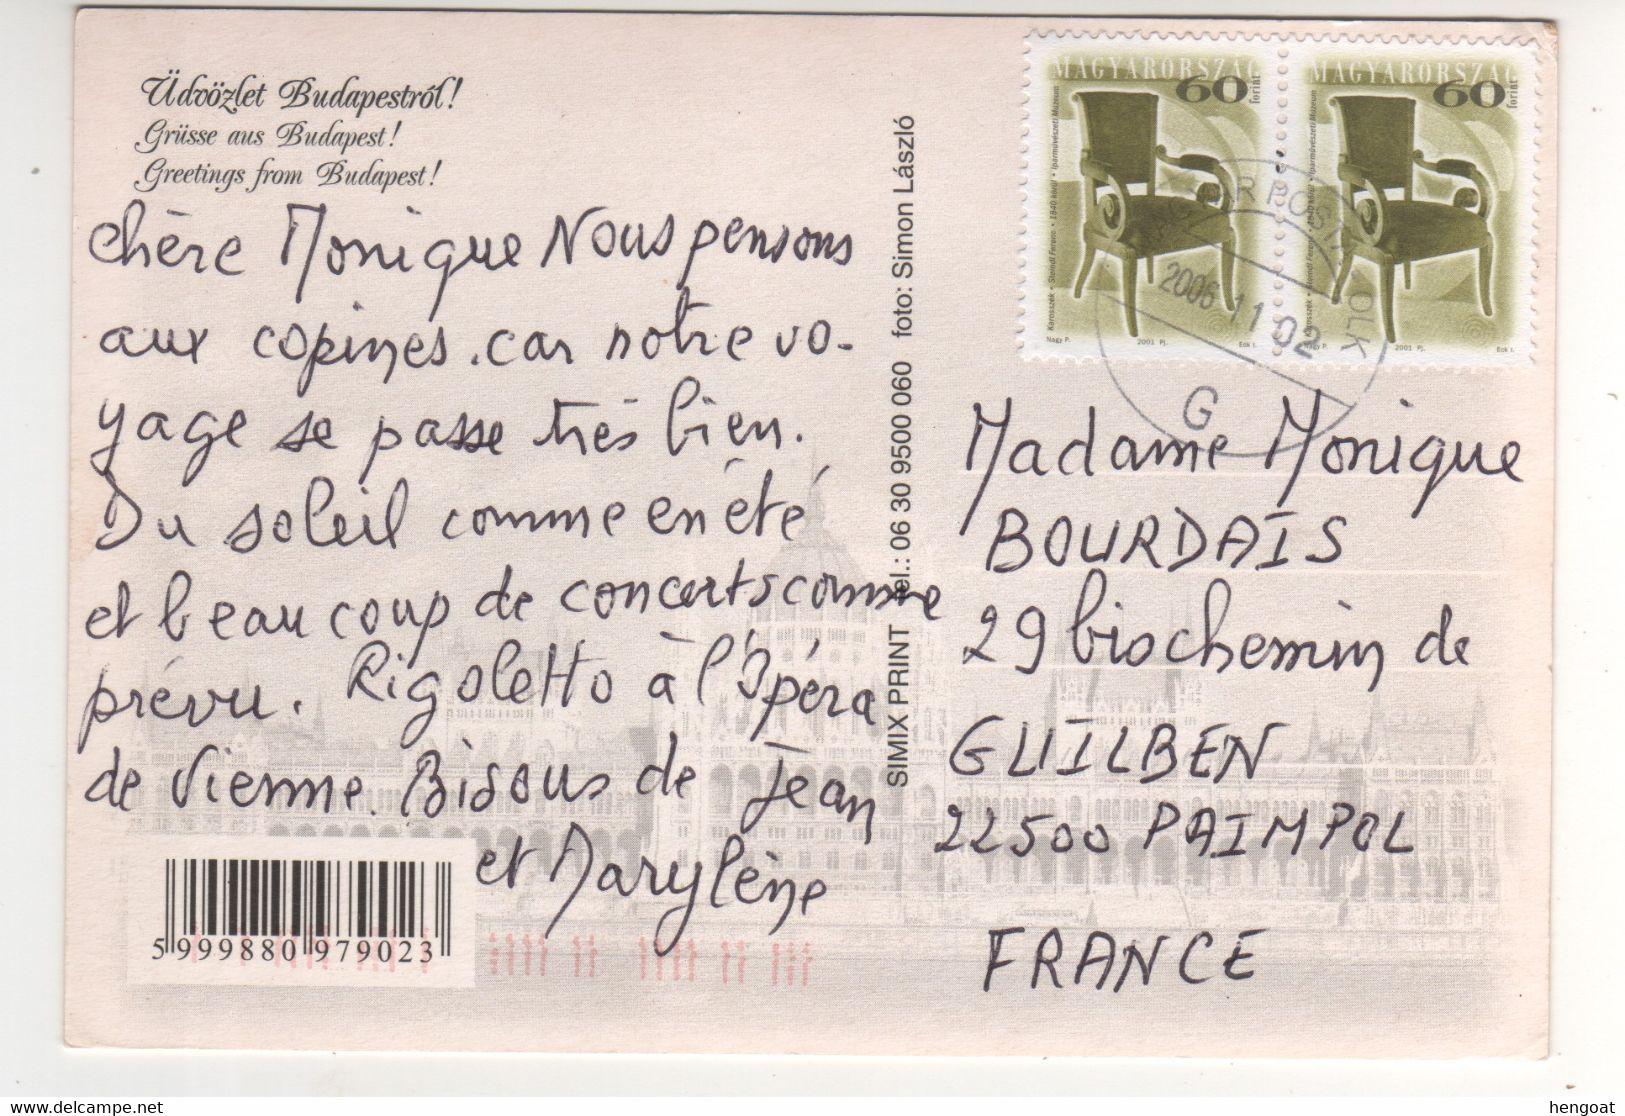 Üdvözlet Budapestről!
Grüsse aus Budapest!
Greetings from Budapest!
chère Monique Nous pensons
aux copines. car notre vo-
yage se passe très bien.
Du soleil comme en été
et beaucoup de concerts comme
prévu. Rigoletto à l'Opéra
de Vienne. Bisous de Jean
et Marylène
5 999880 979023
SIMIX PRINT tel.: 06 30 9500 060 foto: Simon László
MAGYARORSZÁG
60 forint
Karosszék • Steindl Ferenc • 1840 körül • Iparművészeti Múzeum
Nagy P. 2001 Pj. Eok I.
MAGYARORSZÁG
60 forint
Karosszék • Steindl Ferenc • 1840 körül • Iparművészeti Múzeum
Nagy P. 2001 Pj. Eok I.
2006 11 02
G
Madame Monique
BOURDAIS
29 bis chemin de
GUILBEN
22500 PAIMPOL
FRANCE
www.delcampe.net
hengoat